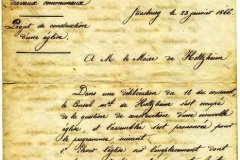 travaux communaux
Strasbourg, le 23 janvier 1866.
Projet de construction
d'une église.
A M. le Maire de Holtzheim
Dans une délibération du 14 du courant,
le Conseil mal de Holtzheim s'est occupé
de la question de construction d'une nouvelle
église et l'assemblée s'est prononcée pour
le programme suivant :
1° Bâtir l'église sur l'emplacement dont